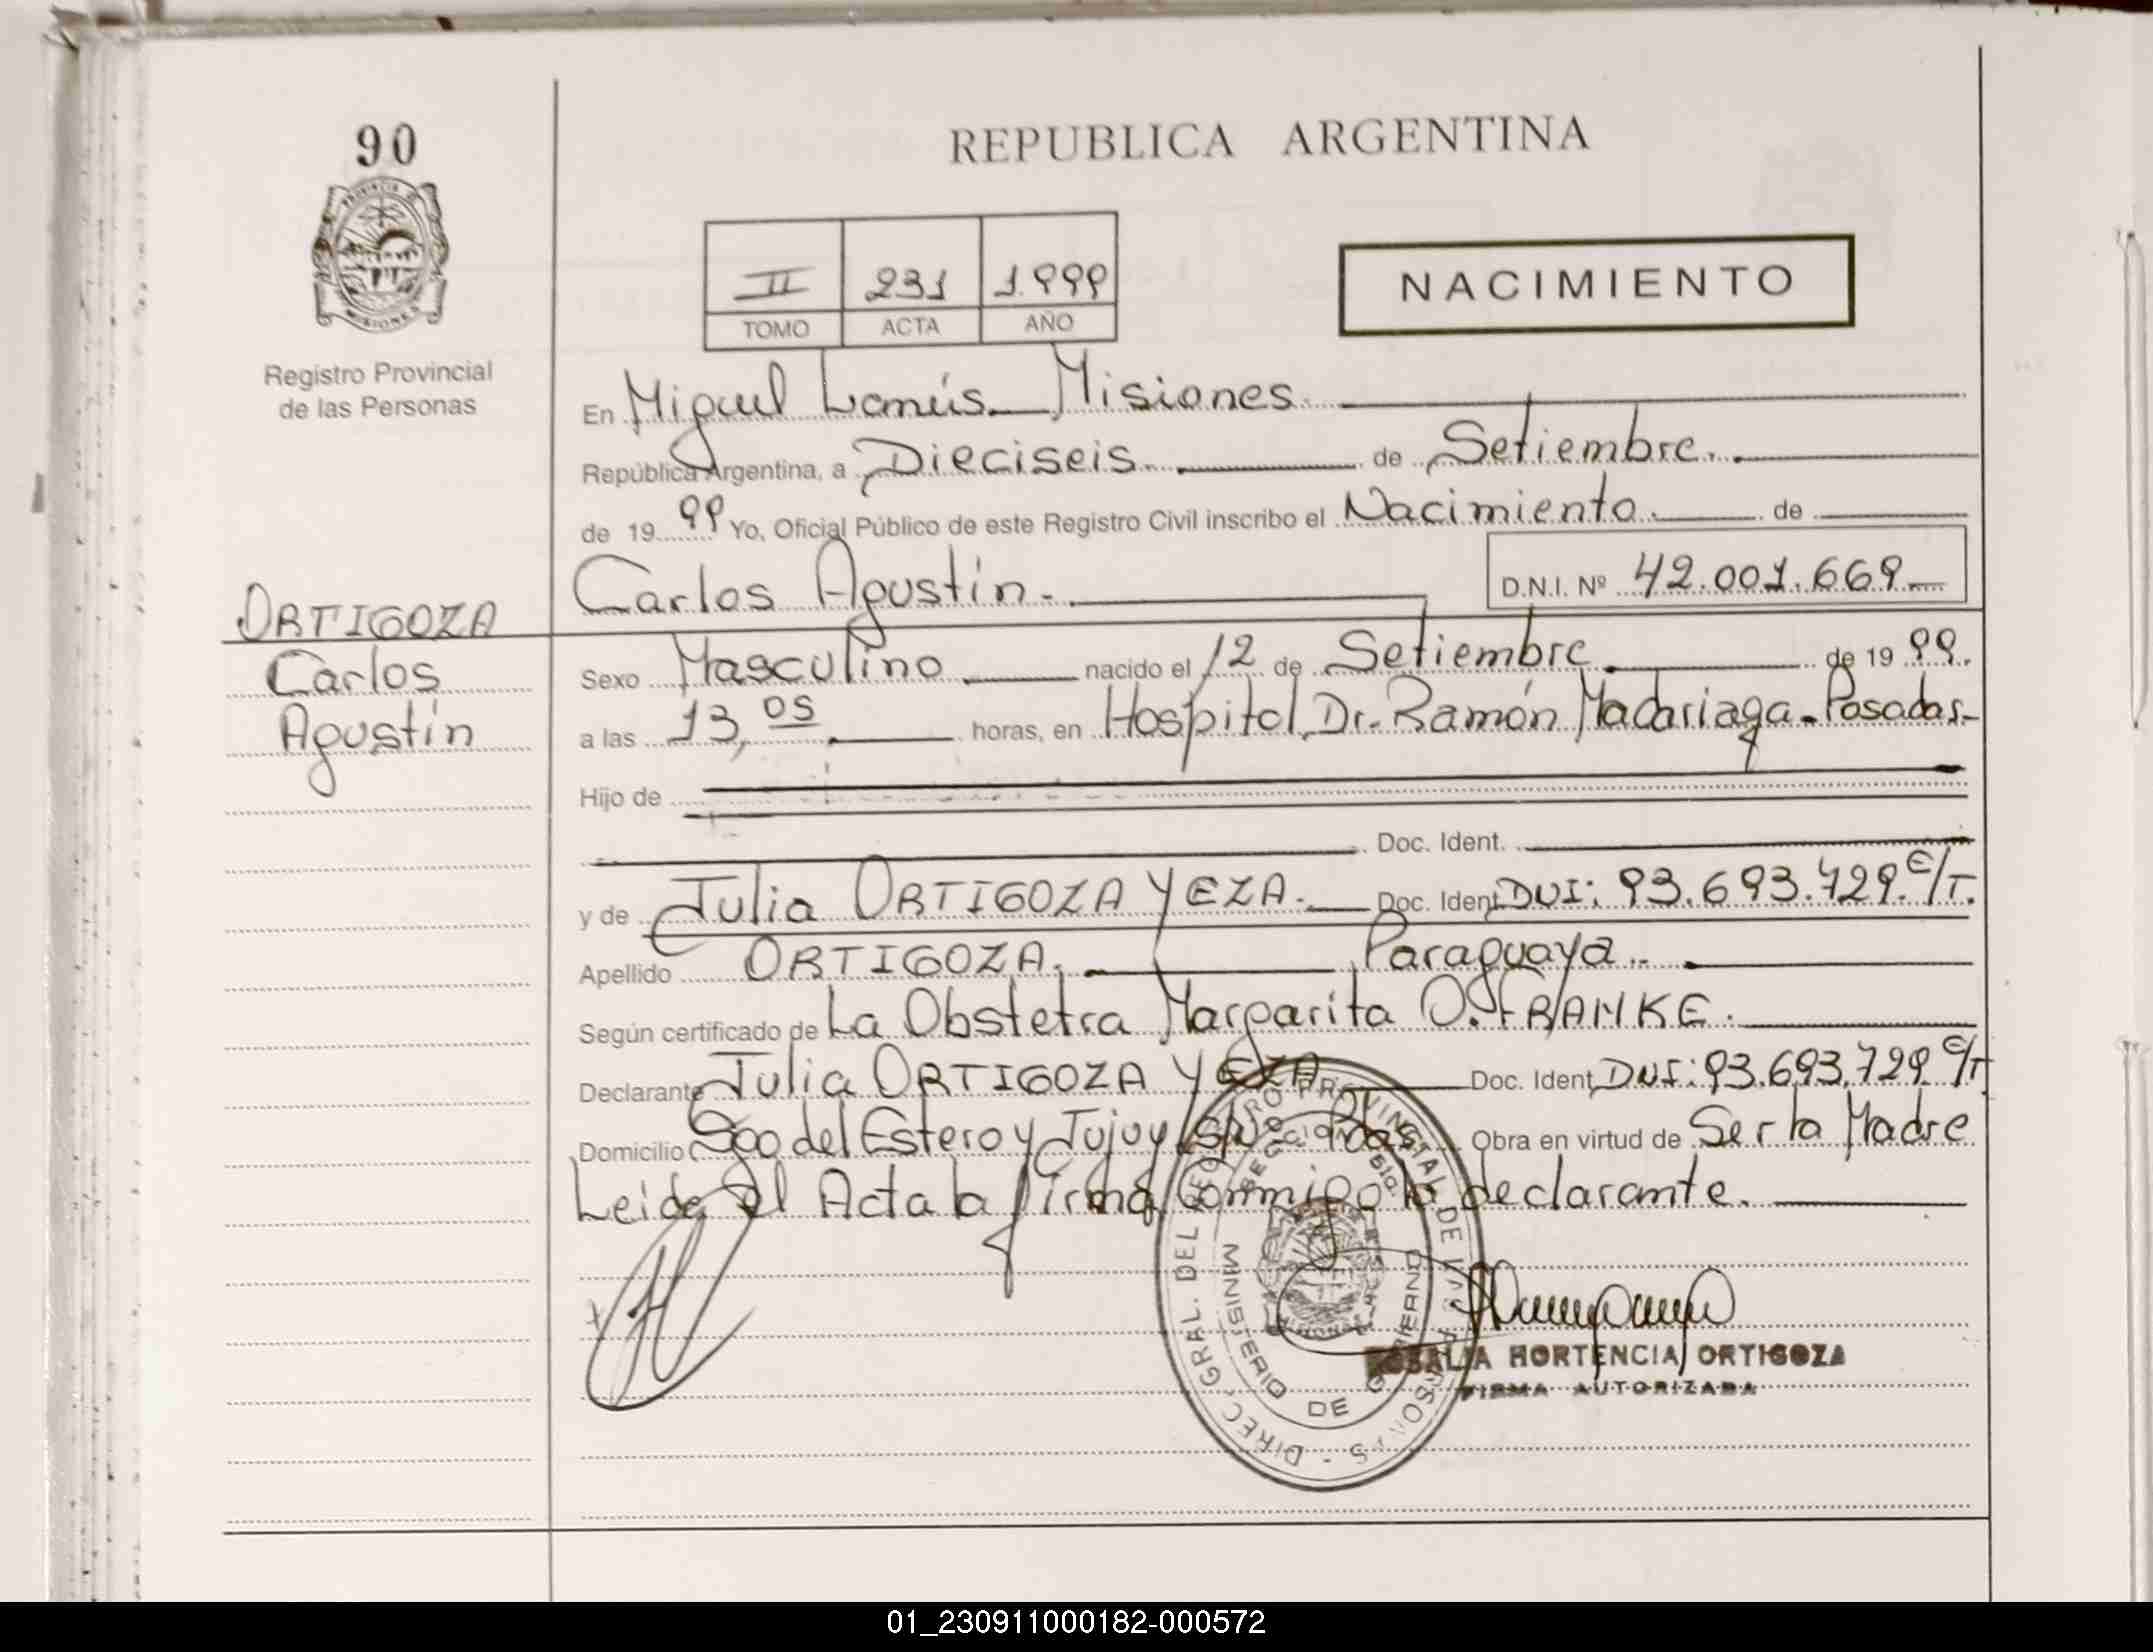 90
REPUBLICA ARGENTINA
PROVINCIA DE
MISIONES
Registro Provincial
de las Personas
II 231 1.999
TOMO ACTA AÑO
NACIMIENTO
En Miguel Lanús. Misiones.
República Argentina, a Dieciseis. de Setiembre.
de 19 99 Yo, Oficial Público de este Registro Civil inscribo el Nacimiento. de
Carlos Agustín. D.N.I. Nº 42.001.669
ORTIGOZA
Carlos
Agustín
Sexo Masculino nacido el 12 de Setiembre. de 19 99.
a las 13,05 horas, en Hospital Dr. Ramón Madariaga - Posadas-
Hijo de
Doc. Ident.
y de Julia ORTIGOZA YEZA. Doc. Ident DUI: 93.693.729. C/T.
Apellido ORTIGOZA. Paraguaya.
Según certificado de La Obstetra Margarita O. FRANKE.
Declarante Julia ORTIGOZA YEZA Doc. Ident. DUI: 93.693.729 C/T
Domicilio Sgo del Estero y Jujuy s/nº Pdas. Obra en virtud de Ser la Madre
Leida el Acta la firma conmigo la declarante.
DIREC. GRAL. DEL REGISTRO PROVINCIAL DE LAS PERSONAS
MINISTERIO DE GOBIERNO
ROSALIA HORTENCIA ORTIGOZA
FIRMA AUTORIZADA
01_230911000182-000572